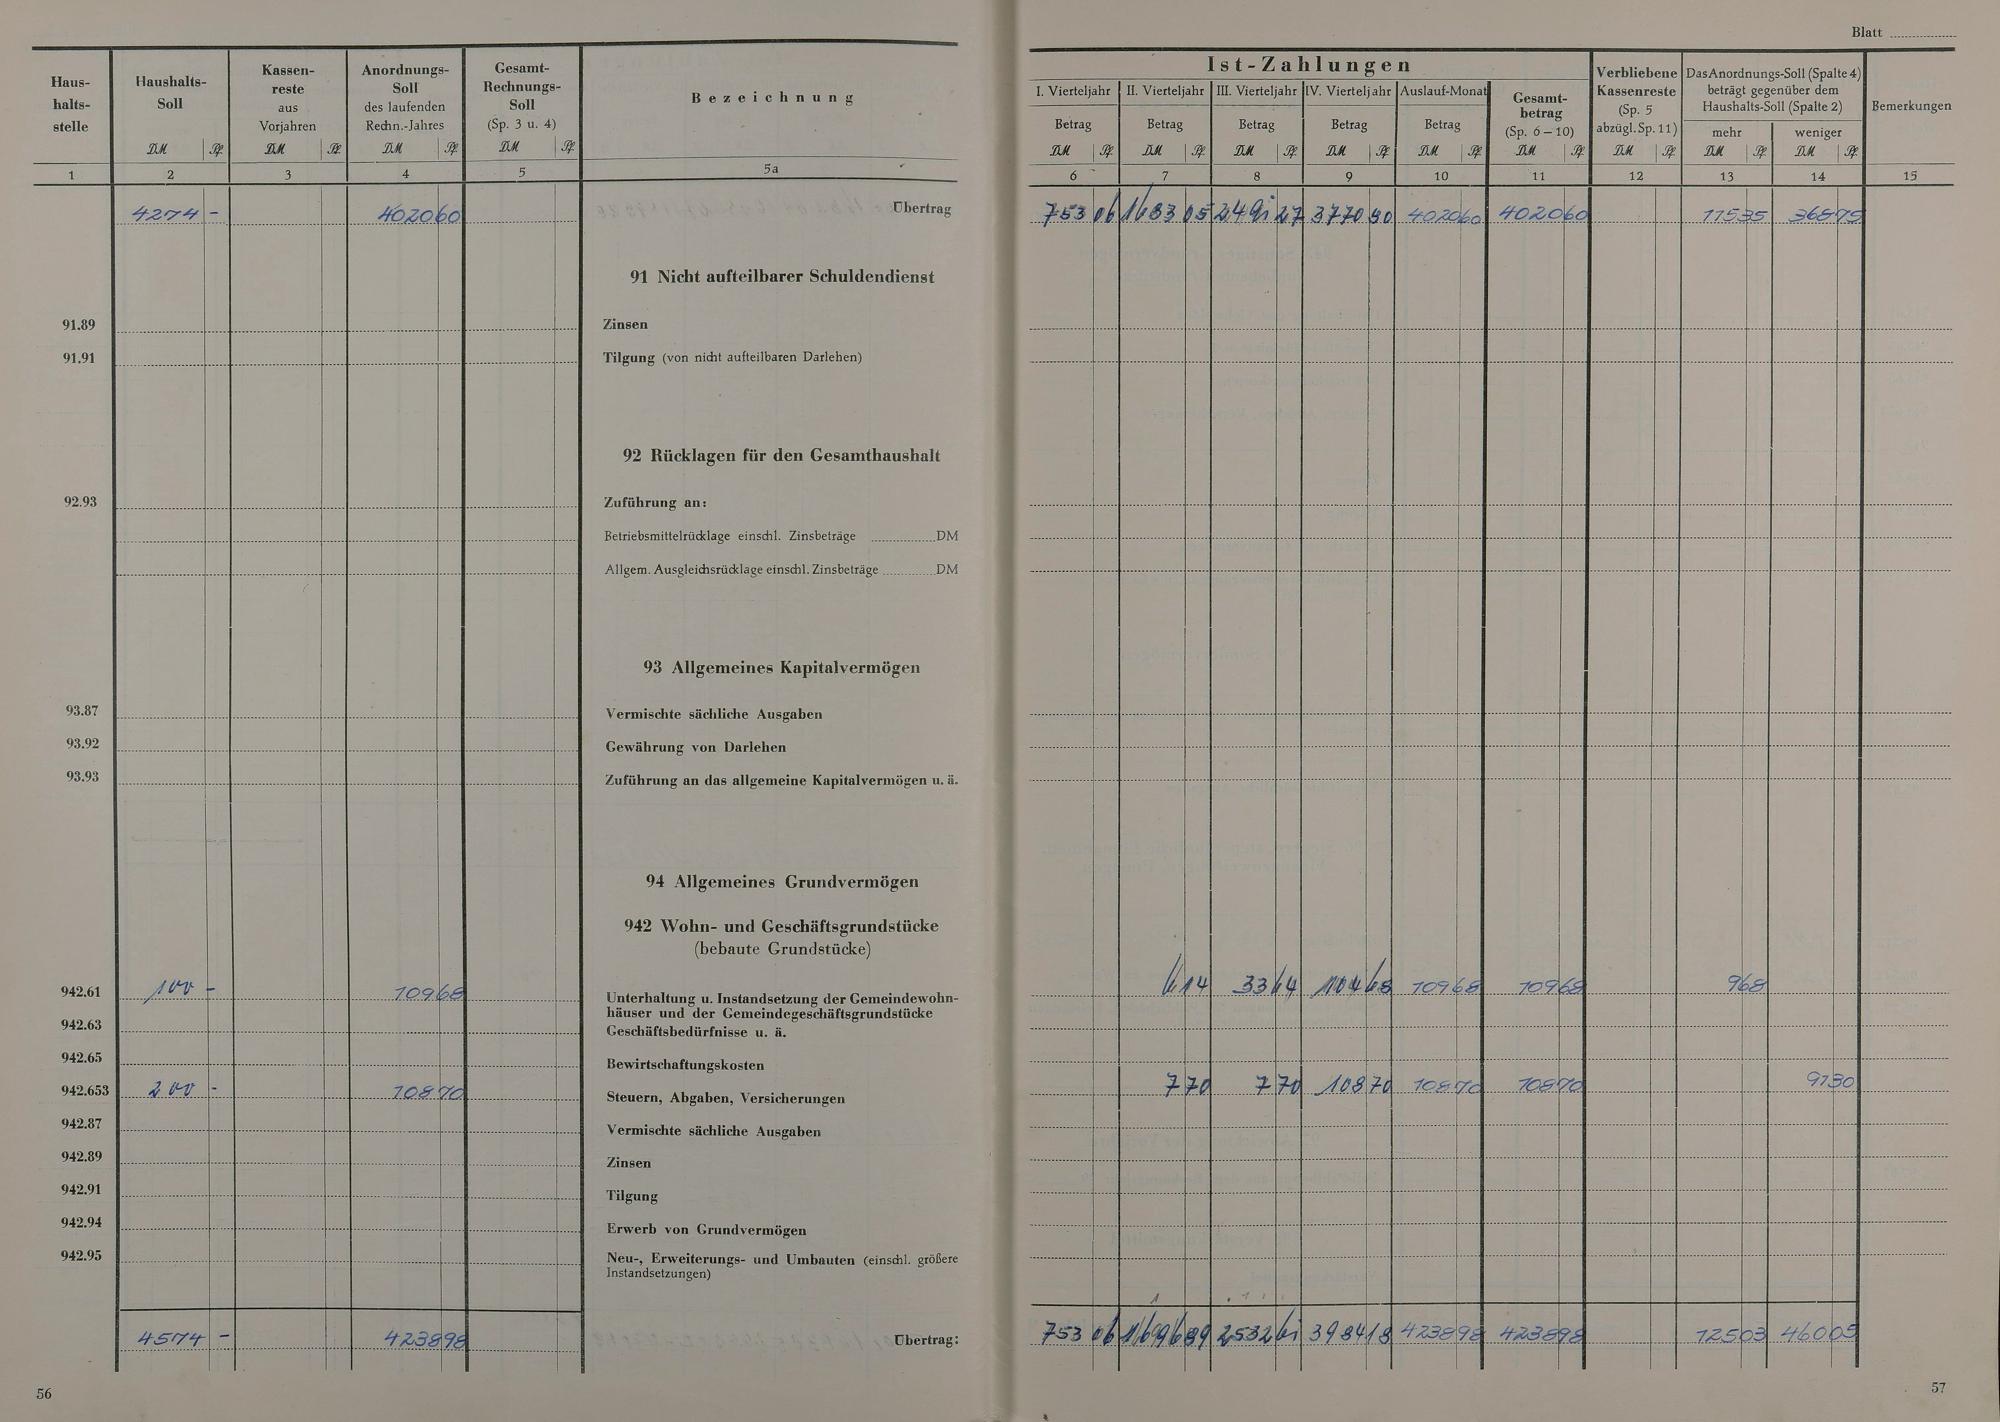 Blatt
Haus-
halts-
stelle
Haushalts-
Soll
Kassen-
reste
aus
Vorjahren
Anordnungs-
Soll
des laufenden
Rechn.-Jahres
Gesamt-
Rechnungs-
Soll
(Sp. 3 u. 4)
Bezeichnung
DM Pf DM Pf DM Pf DM Pf
1 2 3 4 5 5a
Ist-Zahlungen
I. Vierteljahr II. Vierteljahr III. Vierteljahr IV. Vierteljahr Auslauf-Monat
Betrag Betrag Betrag Betrag Betrag
Gesamt-
betrag
(Sp. 6 – 10)
Verbliebene
Kassenreste
(Sp. 5
abzügl. Sp. 11)
Das Anordnungs-Soll (Spalte 4)
beträgt gegenüber dem
Haushalts-Soll (Spalte 2)
mehr weniger
Bemerkungen
DM Pf DM Pf DM Pf DM Pf DM Pf DM Pf DM Pf DM Pf DM Pf
6 7 8 9 10 11 12 13 14 15
4274 - 4020 60 Übertrag 753 06 1683 05 2491 27 3770 90 4020 60 4020 60 115 35 368 75
91 Nicht aufteilbarer Schuldendienst
91.89 Zinsen
91.91 Tilgung (von nicht aufteilbaren Darlehen)
92 Rücklagen für den Gesamthaushalt
92.93 Zuführung an:
Betriebsmittelrücklage einschl. Zinsbeträge DM
Allgem. Ausgleichsrücklage einschl. Zinsbeträge DM
93 Allgemeines Kapitalvermögen
93.87 Vermischte sächliche Ausgaben
93.92 Gewährung von Darlehen
93.93 Zuführung an das allgemeine Kapitalvermögen u. ä.
94 Allgemeines Grundvermögen
942 Wohn- und Geschäftsgrundstücke
(bebaute Grundstücke)
942.61 100 - 109 68 Unterhaltung u. Instandsetzung der Gemeindewohn- 6 14 33 64 104 68 109 68 109 68 9 68
häuser und der Gemeindegeschäftsgrundstücke
942.63 Geschäftsbedürfnisse u. ä.
942.65 Bewirtschaftungskosten
942.653 200 - 108 70 Steuern, Abgaben, Versicherungen 7 70 7 70 108 70 108 70 108 70 91 30
942.87 Vermischte sächliche Ausgaben
942.89 Zinsen
942.91 Tilgung
942.94 Erwerb von Grundvermögen
942.95 Neu-, Erweiterungs- und Umbauten (einschl. größere
Instandsetzungen)
4574 - 4238 98 Übertrag: 753 06 1696 89 2532 61 3984 18 4238 98 4238 98 125 03 460 05
56
57